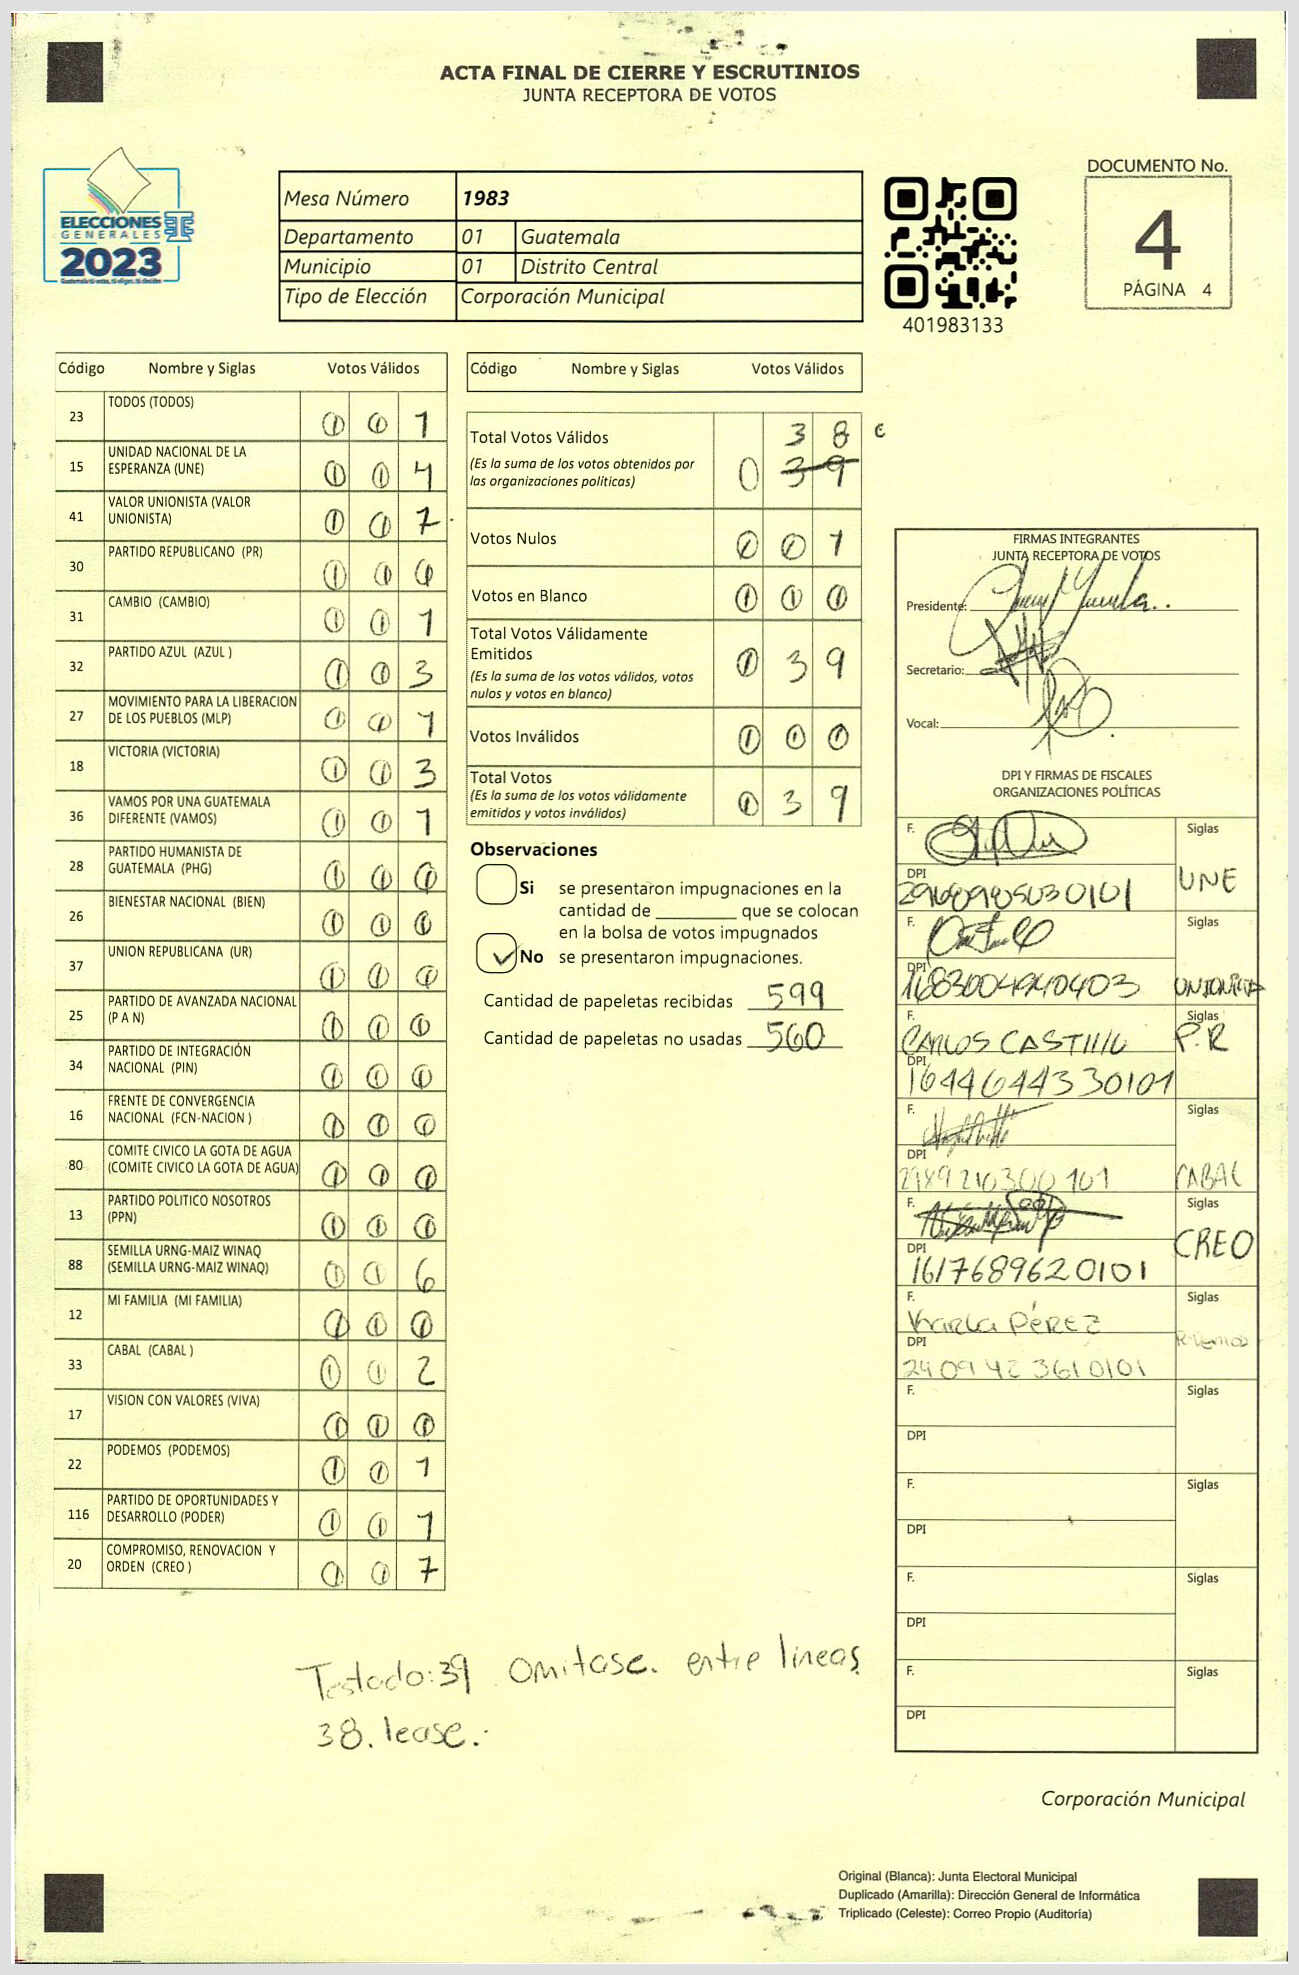 ACTA FINAL DE CIERRE Y ESCRUTINIOS
JUNTA RECEPTORA DE VOTOS
ELECCIONES
GENERALES
2023
Guatemala tú votas, tú eliges, tú decides
Mesa Número 1983
Departamento 01 Guatemala
Municipio 01 Distrito Central
Tipo de Elección Corporación Municipal
401983133
DOCUMENTO No.
4
PÁGINA 4
Código Nombre y Siglas Votos Válidos
23 TODOS (TODOS) 0 0 1
15 UNIDAD NACIONAL DE LA
ESPERANZA (UNE) 0 0 4
41 VALOR UNIONISTA (VALOR
UNIONISTA) 0 0 7
30 PARTIDO REPUBLICANO (PR) 0 0 0
31 CAMBIO (CAMBIO) 0 0 1
32 PARTIDO AZUL (AZUL ) 0 0 3
27 MOVIMIENTO PARA LA LIBERACION
DE LOS PUEBLOS (MLP) 0 0 1
18 VICTORIA (VICTORIA) 0 0 3
36 VAMOS POR UNA GUATEMALA
DIFERENTE (VAMOS) 0 0 1
28 PARTIDO HUMANISTA DE
GUATEMALA (PHG) 0 0 0
26 BIENESTAR NACIONAL (BIEN) 0 0 0
37 UNION REPUBLICANA (UR) 0 0 0
25 PARTIDO DE AVANZADA NACIONAL
(P A N) 0 0 0
34 PARTIDO DE INTEGRACIÓN
NACIONAL (PIN) 0 0 0
16 FRENTE DE CONVERGENCIA
NACIONAL (FCN-NACION ) 0 0 0
80 COMITE CIVICO LA GOTA DE AGUA
(COMITE CIVICO LA GOTA DE AGUA) 0 0 0
13 PARTIDO POLITICO NOSOTROS
(PPN) 0 0 0
88 SEMILLA URNG-MAIZ WINAQ
(SEMILLA URNG-MAIZ WINAQ) 0 0 6
12 MI FAMILIA (MI FAMILIA) 0 0 0
33 CABAL (CABAL ) 0 0 2
17 VISION CON VALORES (VIVA) 0 0 0
22 PODEMOS (PODEMOS) 0 0 1
116 PARTIDO DE OPORTUNIDADES Y
DESARROLLO (PODER) 0 0 1
20 COMPROMISO, RENOVACION Y
ORDEN (CREO ) 0 0 7
Código Nombre y Siglas Votos Válidos
Total Votos Válidos 3 8
(Es la suma de los votos obtenidos por
las organizaciones políticas) 0 39
Votos Nulos 0 0 1
Votos en Blanco 0 0 0
Total Votos Válidamente
Emitidos 0 3 9
(Es la suma de los votos válidos, votos
nulos y votos en blanco)
Votos Inválidos 0 0 0
Total Votos
(Es la suma de los votos válidamente
emitidos y votos inválidos) 0 3 9
Observaciones
Si se presentaron impugnaciones en la
cantidad de ________ que se colocan
en la bolsa de votos impugnados
No se presentaron impugnaciones.
Cantidad de papeletas recibidas 599
Cantidad de papeletas no usadas 560
FIRMAS INTEGRANTES
JUNTA RECEPTORA DE VOTOS
Presidente:
Secretario:
Vocal:
DPI Y FIRMAS DE FISCALES
ORGANIZACIONES POLÍTICAS
F. Siglas
DPI UNE
F. Siglas
DPI
F. CARLOS CASTILLO Siglas P.R
DPI 1644644330101
F. Siglas
DPI 2989210300101 CABAL
F. Siglas
DPI 1617689620101 CREO
F. Karla PÉREZ Siglas
DPI 2409423610101
F. Siglas
DPI
F. Siglas
DPI
F. Siglas
DPI
F. Siglas
DPI
Testado: 39 Omitase. entre lineas
38. lease.-
Corporación Municipal
Original (Blanca): Junta Electoral Municipal
Duplicado (Amarilla): Dirección General de Informática
Triplicado (Celeste): Correo Propio (Auditoría)